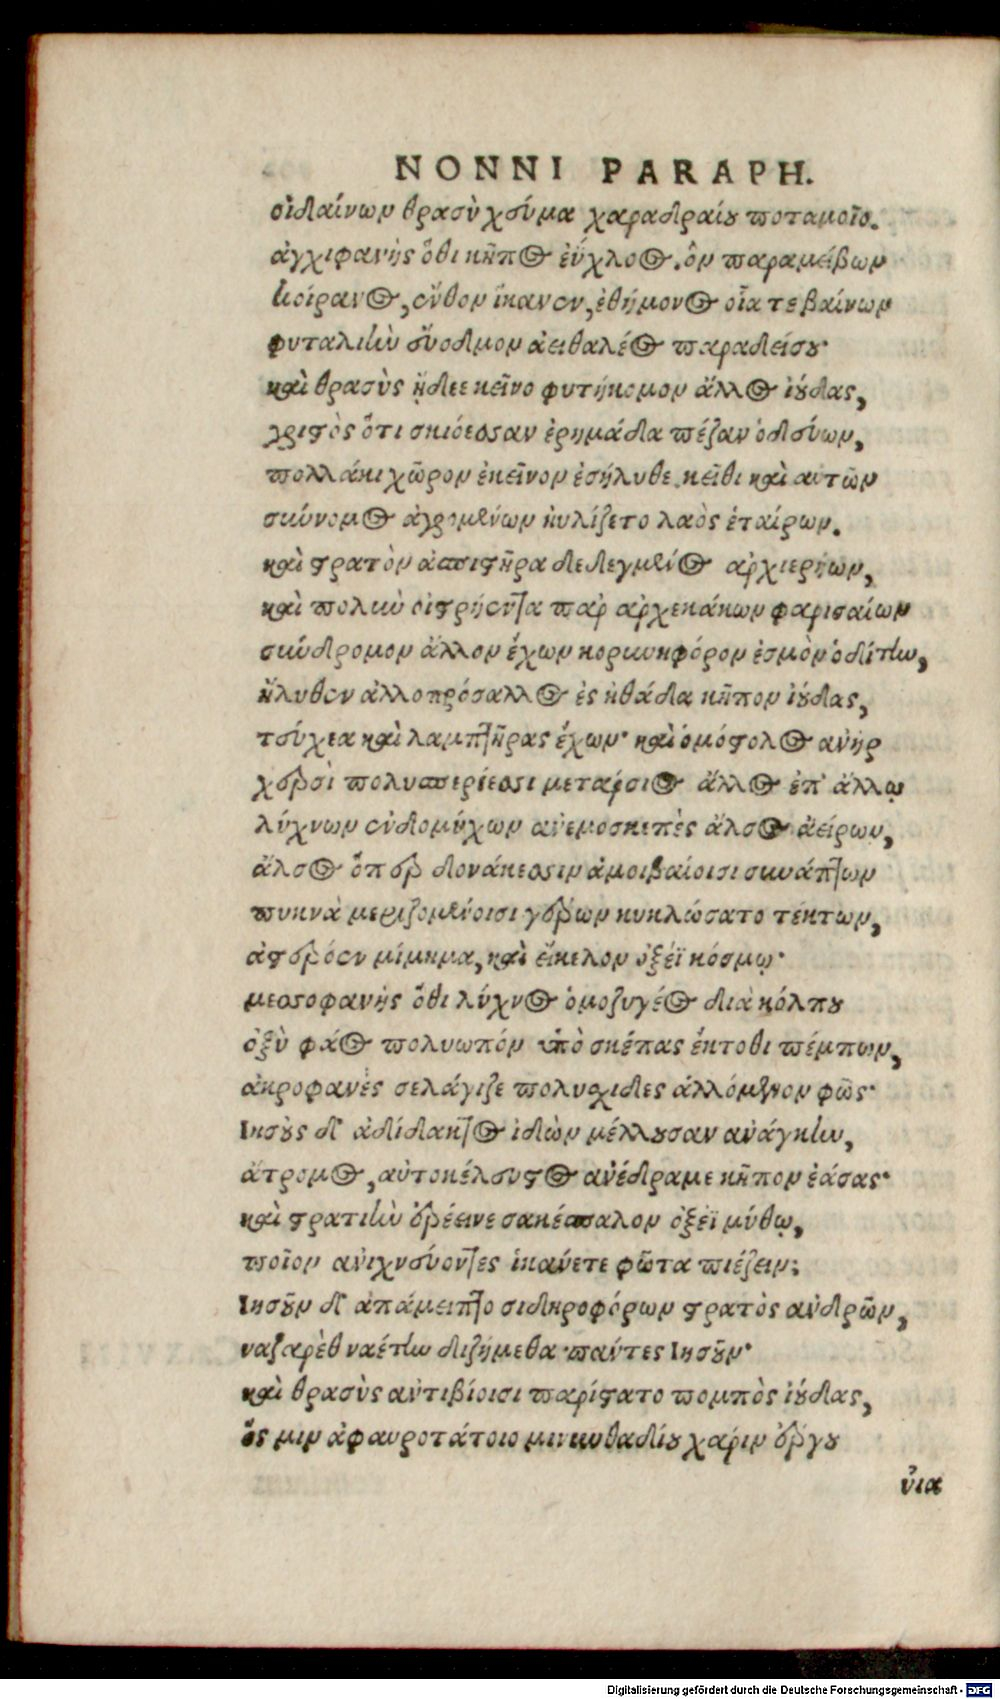 NONNI PARAPH.
οἰδαίνων θρασὺ χεύμα χαραδραίου ποταμοῖο.
ἀγχιφανὴς ὅθι κῆπος ἐΰχλοος. ὃν παραμείβων
κοίρανος, ἔνθον ἵκανεν, ἐθήμονος οἷα τε βαίνων
φυταλιὴν εὔοδμον ἀειθαλέος παραδείσου·
καὶ θρασὺς ᾔδεε κεῖνο φυτήκομον ἄλλος ἰούδας,
χριστὸς ὅτι σκιόεσσαν ἐρημάδα πέζαν ὁδεύων,
πολλάκι χῶρον ἐκεῖνον ἐσήλυθε. κεῖθι καὶ αὐτῶν
σκύνομος ἀγρομένων κυλίζετο λαὸς ἑταίρων.
καὶ στρατὸν ἀσπιστῆρα δεδεγμένος ἀρχιερήων,
καὶ πολὺν οἰστρήεντα παρ ἀρχεκάκων φαρισαίων
σύνδρομον ἄλλον ἔχων κορυνηφόρον ἑσμὸν ὁδίτην,
ἤλυθεν ἀλλοπρόσαλλος ἐς ἠθάδα κῆπον ἰούδας,
τεύχεα καὶ λαμπτῆρας ἔχων· καὶ ὁμόστολος ἀνὴρ
χερσὶ πολυσπερέεσσι μετάρσιος ἄλλος ἐπ' ἄλλῳ
λύχνων ἐνδομύχων ἀνεμοσκεπὲς ἄλσος ἀείρων,
ἄλσος ὅπερ δονάκεσσιν ἀμοιβαίοισι συνάπτων
πυκνὰ μεριζομένοισι γέρων κυκλώσατο τέκτων,
ἀστερόεν μίμημα, καὶ εἴκελον ὀξέϊ κόσμῳ·
μεσσοφανὴς ὅθι λύχνος ὁμοζυγέος διὰ κόλπου
ὀξὺ φάος πολυωπὸν ὑπὸ σκέπας ἔκτοθι πέμπων,
ἀκροφανὲς σελάγιζε πολυσχιδὲς ἁλλόμενον φῶς·
Ιησοῦς δ' ἀδίδακτος ἰδὼν μέλλουσαν ἀνάγκην,
ἄτρομος, αὐτοκέλευστος ἀνέδραμε κῆπον ἐάσας·
καὶ στρατιὴν ἐρέεινε σακέσπαλον ὀξέϊ μύθῳ,
ποῖον ἀνιχνεύοντες ἱκάνετε φῶτα πιέζειν;
Ιησοῦν δ' ἀπάμειπτο σιδηροφόρων στρατὸς ἀνδρῶν,
ναζαρὲθ ναέτην διζήμεθα πάντες Ιησοῦν·
καὶ θρασὺς ἀντιβίοισι παρίστατο πομπὸς ἰούδας,
ὅς μιν ἀφαυροτάτοιο μινυνθαδίου χάριν ἔργου
ὑια
Digitalisierung gefördert durch die Deutsche Forschungsgemeinschaft - DFG